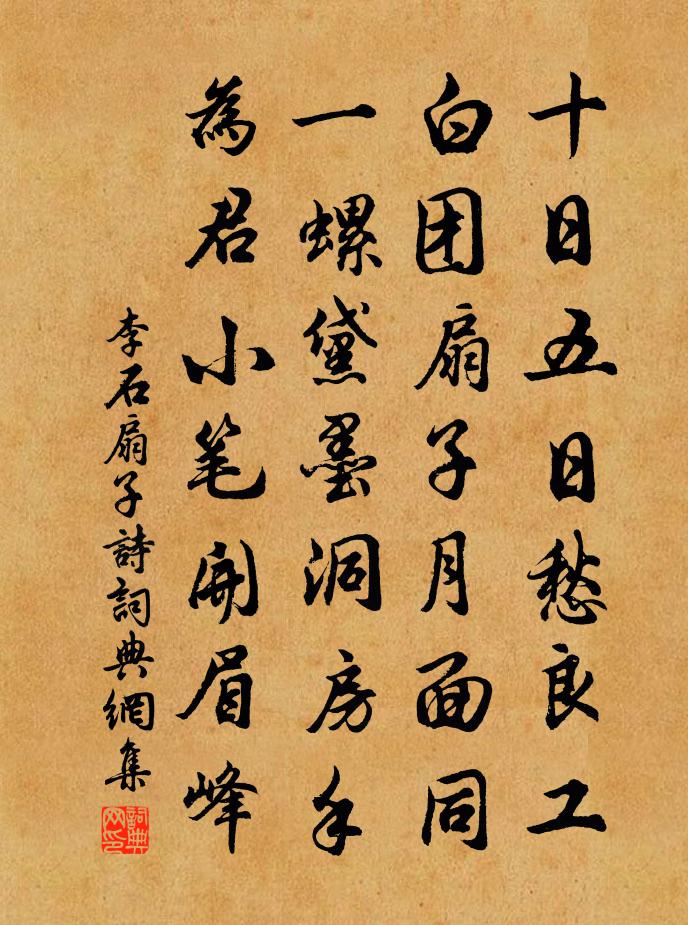 十日五日愁良工
白团扇子月面同
一螺黛墨洞房手
為君小笔開眉峰
李石扇子詩詞典網集
詞典网印